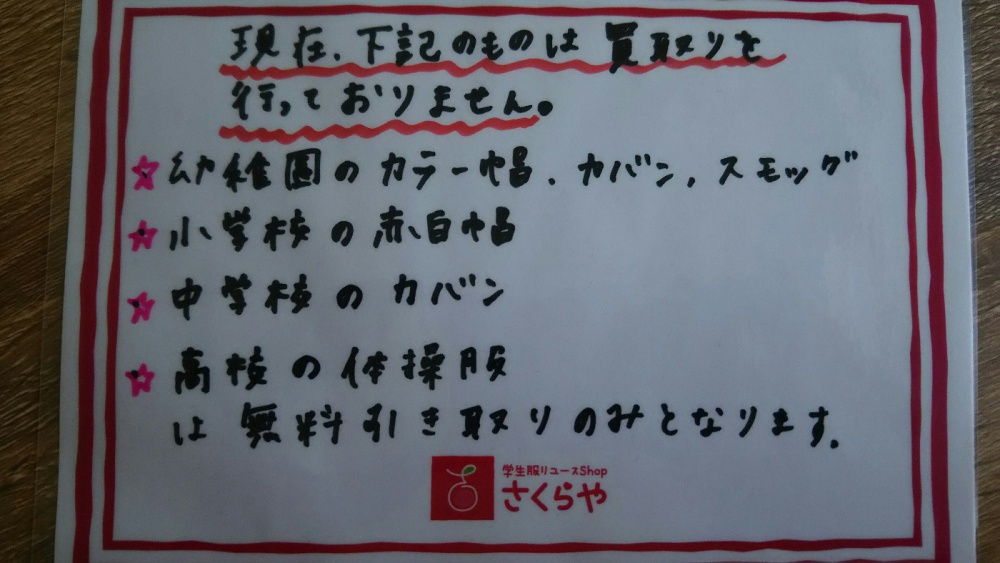 現在、下記のものは買取りを
行っておりません。
☆幼稚園のカラー帽、カバン、スモッグ
☆小学校の赤白帽
☆中学校のカバン
☆高校の体操服
は無料引き取りのみとなります。
学生服リユースShop
さくらや